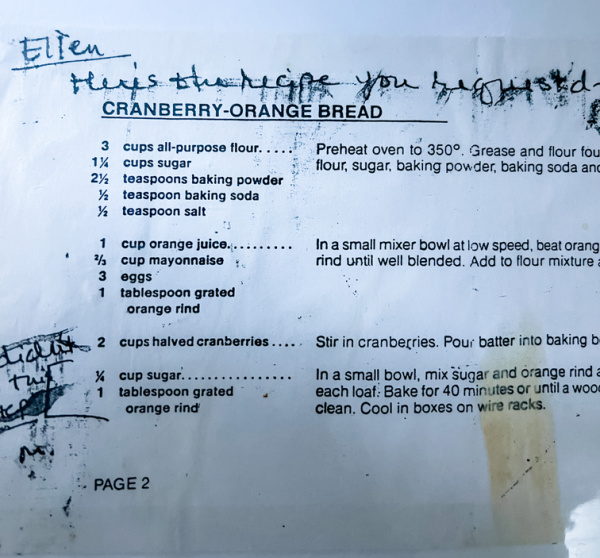 Ellen
Here's the recipe you requested-
CRANBERRY-ORANGE BREAD
3 cups all-purpose flour..... Preheat oven to 350°. Grease and flour fou
1¼ cups sugar flour, sugar, baking powder, baking soda and
2½ teaspoons baking powder
½ teaspoon baking soda
½ teaspoon salt
1 cup orange juice.......... In a small mixer bowl at low speed, beat orang
⅔ cup mayonnaise rind until well blended. Add to flour mixture a
3 eggs
1 tablespoon grated
orange rind
2 cups halved cranberries.... Stir in cranberries. Pour batter into baking b
¼ cup sugar................ In a small bowl, mix sugar and orange rind a
1 tablespoon grated each loaf. Bake for 40 minutes or until a wood
orange rind clean. Cool in boxes on wire racks.
didn't
this
PAGE 2